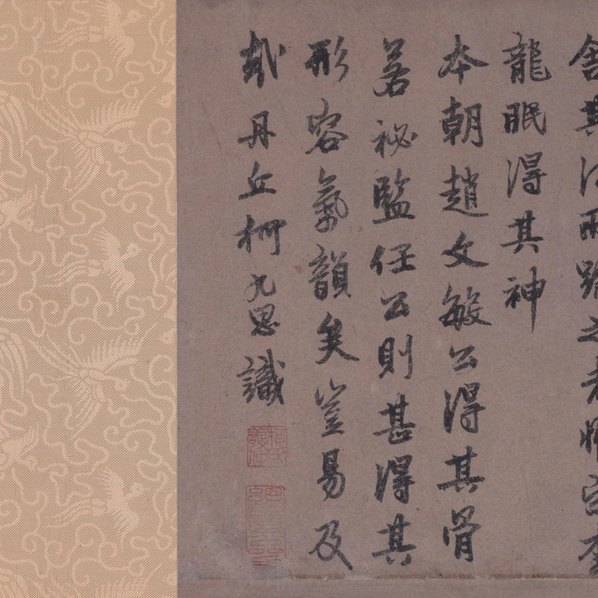 舍其後而號之者惟宋李
龍眠得其神
本朝趙文敏公得其骨
若祕監任公則甚得其
形容氣韻矣豈易及
哉丹丘柯九思識